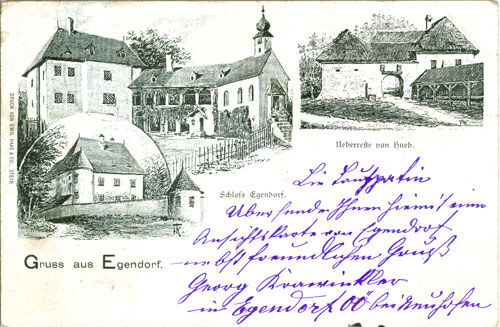 DRUCK VON EMIL HAAS & CO. STEYR.
Ueberreste von Hueb.
Schloss Egendorf.
Gruss aus Egendorf.
Übersende Ihnen hiemit eine
Ansichtskarte von Egendorf
nebst freundlichen Gruß
Georg Krawinkler
in Egendorf OÖ bei Neuhofen